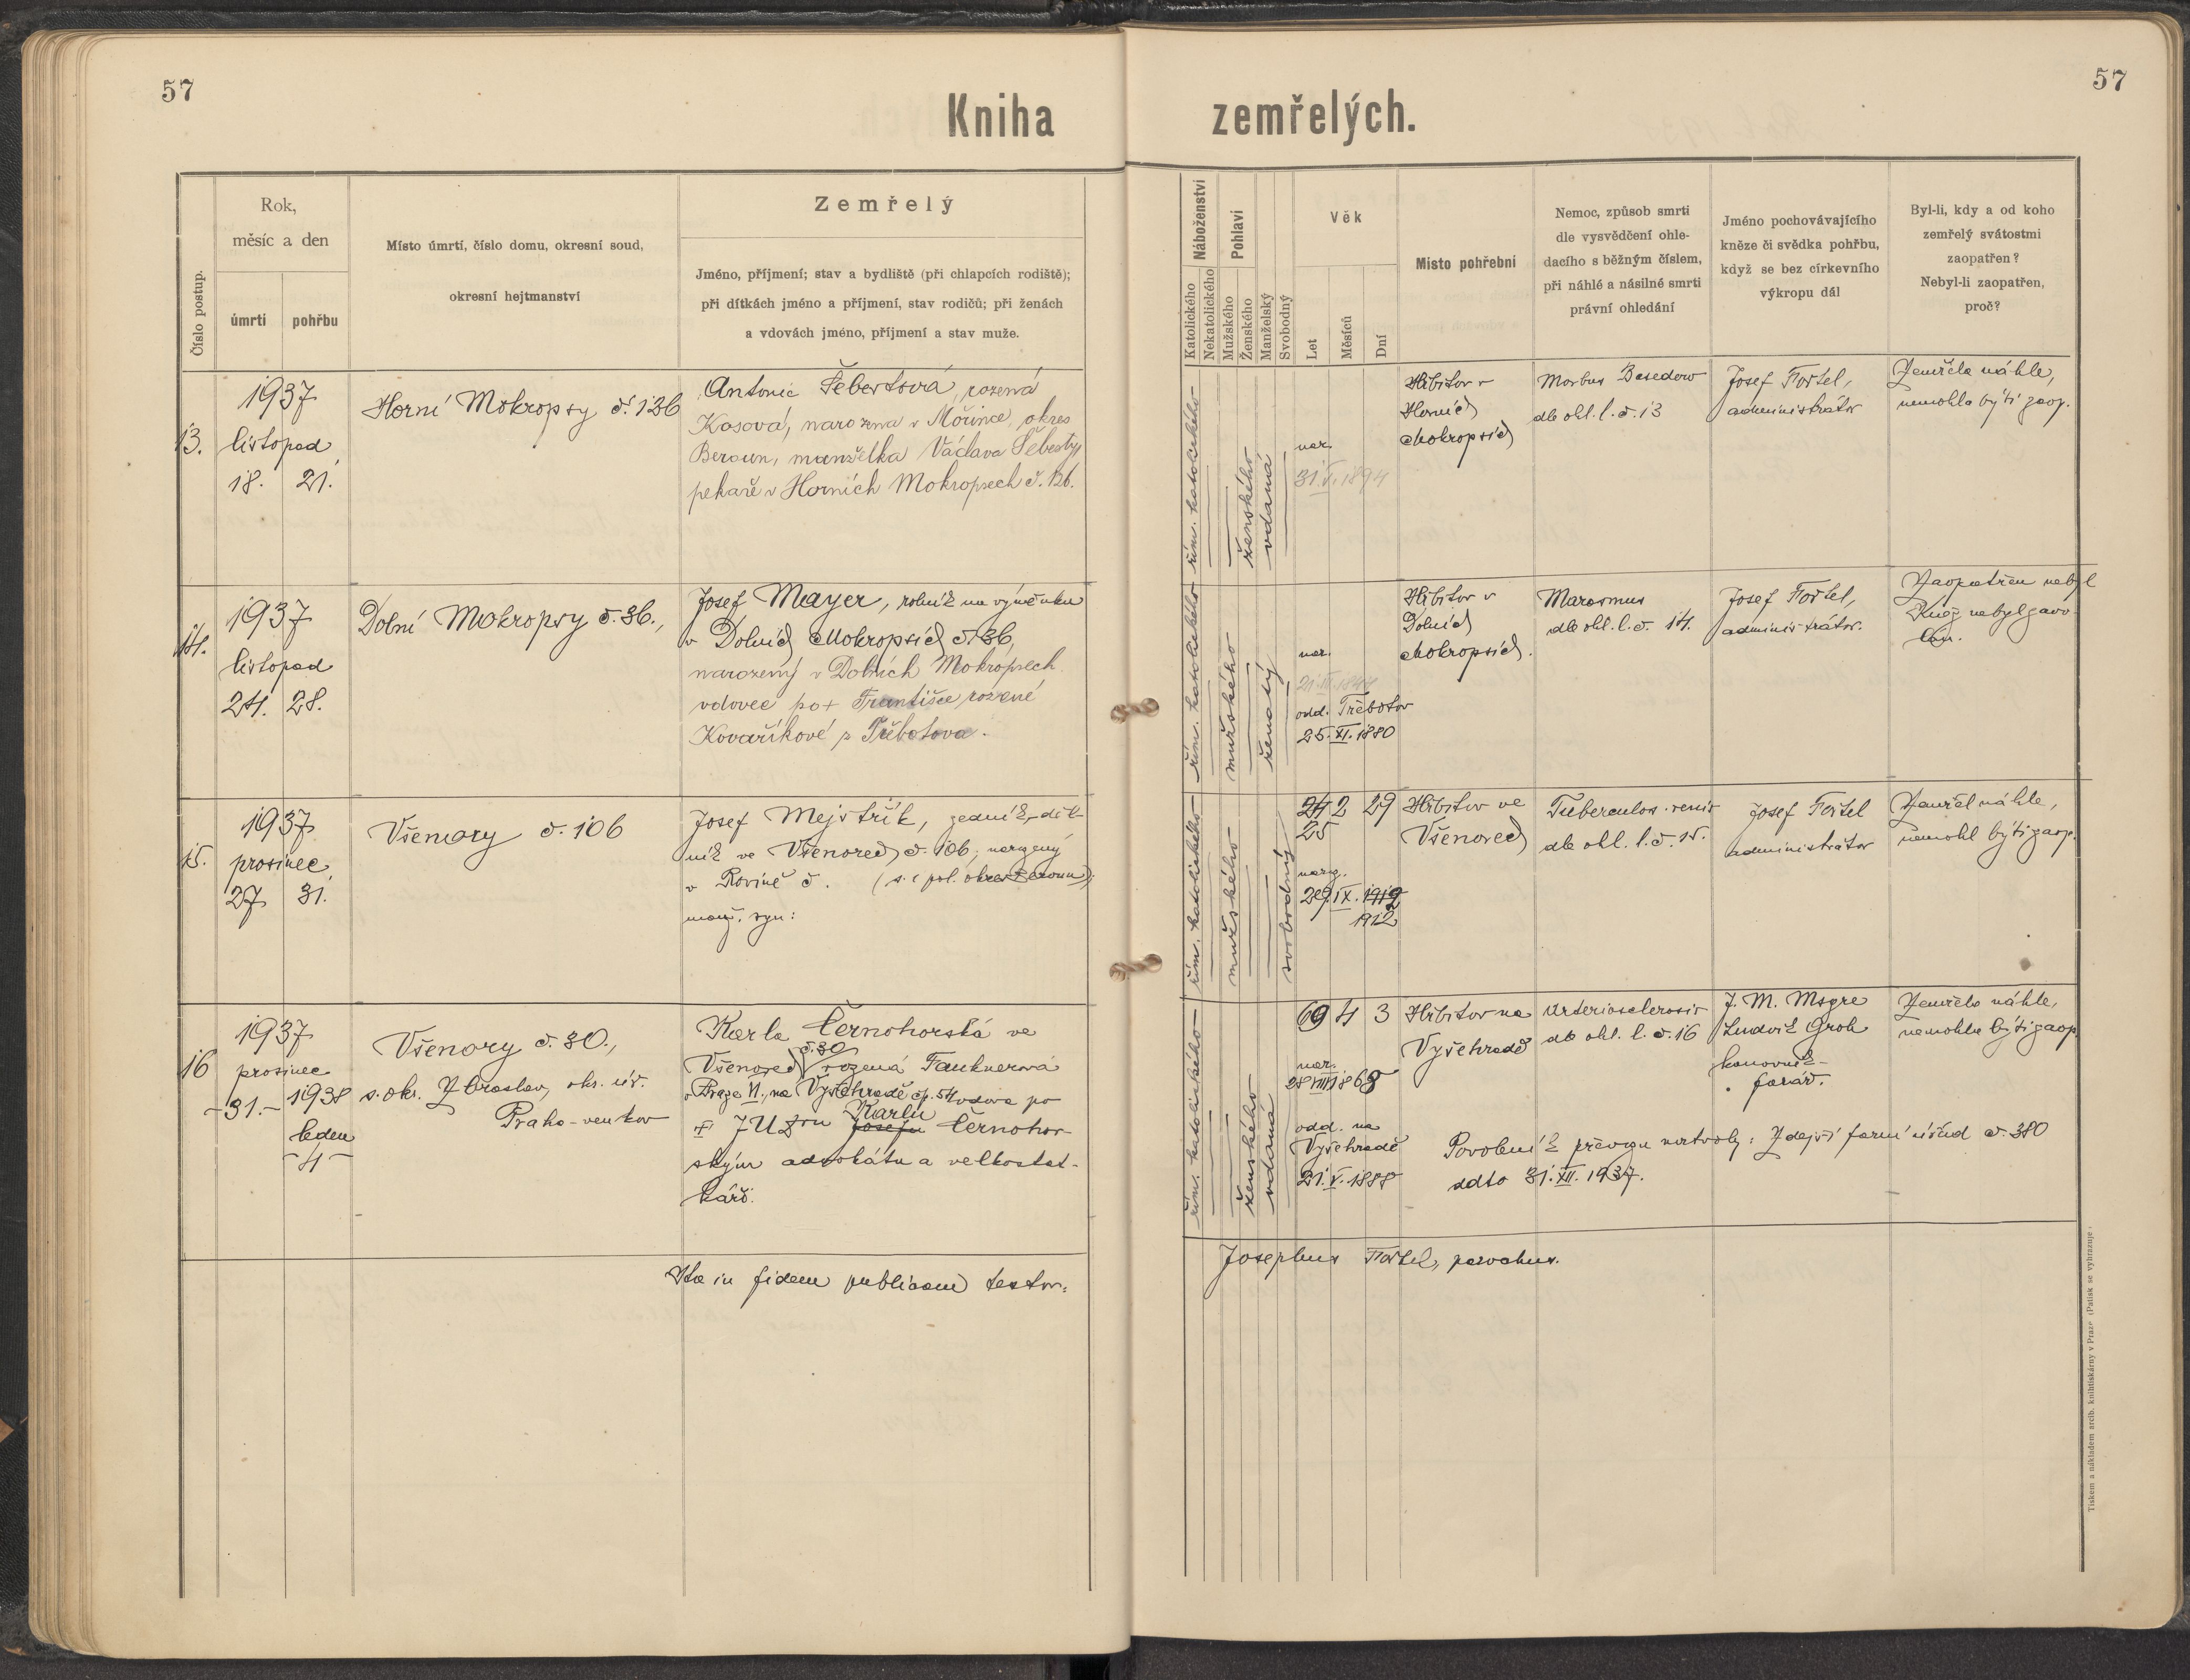 57
57
Kniha zemřelých.
Číslo postup.
Rok,
měsíc a den
úmrtí
pohřbu
Místo úmrtí, číslo domu, okresní soud,
okresní hejtmanství
Zemřelý
Jméno, příjmení; stav a bydliště (při chlapcích rodiště);
při dítkách jméno a příjmení, stav rodičů; při ženách
a vdovách jméno, příjmení a stav muže.
Náboženství
Katolického
Nekatolického
Pohlaví
Mužského
Ženského
Manželský
Svobodný
Věk
Let
Měsíců
Dní
Místo pohřební
Nemoc, způsob smrti
dle vysvědčení ohle-
dacího s běžným číslem,
při náhlé a násilné smrti
právní ohledání
Jméno pochovávajícího
kněze či svědka pohřbu,
když se bez církevního
výkropu dál
Byl-li, kdy a od koho
zemřelý svátostmi
zaopatřen?
Nebyl-li zaopatřen,
proč?
13.
1937
listopad
18. 21.
Horní Mokropsy č. 126
Antonie Šebestová, rozená
Kosová, narozena v Mořince, okres
Beroun, manželka Václava Šebesty,
pekaře v Horních Mokropsech č. 126.
řím. katolického
ženského
vdaná
nar.
31.V.1894
Hřbitov v
Horních
Mokropsích
Morbus Basedow
dle ohl. l. č. 13
Josef Fořtel,
administrátor
Zemřela náhle,
nemohla býti zaop.
14.
1937
listopad
24. 28.
Dolní Mokropsy č. 36.,
Josef Mayer, rolník na výměnku
v Dolních Mokropsích č. 36,
narozený v Dolních Mokropsech
vdovec po + Františce rozené
Kovaříkové z Třebotova.
řím. katolického
mužského
ženatý
nar.
odd. Třebotov
25.XI.1880
Hřbitov v
Dolních
Mokropsích.
Marasmus
dle ohl. l. č. 14.
Josef Fořtel,
administrátor.
Zaopatřen nebyl
Kněz nebyl zavo-
lán.
15.
1937
prosinec
27 31.
Všenory č. 106
Josef Mejstřík, zedník, děl-
ník ve Všenorech č. 106, narozený
v Rovině č. (s. i pol. okres Beroun);
manž. syn:
řím. katolického
mužského
svobodný
24 2 29
25
naroz.
29.IX.1912
1912
Hřbitov ve
Všenorech
Tuberculos. renis
dle ohl. l. č. 15.
Josef Fořtel
administrátor
Zemřel náhle,
nemohl býti zaop.
16
1937
prosinec
-31.- 1938
leden
-4-
Všenory č. 30.,
s. okr. Zbraslav, okr. úř.
Praha-venkov
Karla Černohorská ve
č. 30
Všenorech rozená Fauknerová
v Praze VI., na Vyšehradě čp. 54 vdova po
Karlu
+ JUDru Josefu Černohor-
ským advokátu a velkostat-
káři.
řím. katolického
ženského
vdaná
69 4 3
nar.
28 VIII 1868
odd. na
Vyšehradě
21.V.1888
Hřbitov na
Vyšehradě
Arteriosclerosis
dle ohl. l. č. 16
J. M. Msgre
Ludvík Groh
kanovník-
farář.
Zemřela náhle,
nemohla býti zaop.
Povolení k převozu mrtvoly: Zdejší farní úřad č. 380
ddto 31.XII.1937.
Ita in fidem publicam testor:
Josephus Fořtel, parochus.
Tiskem a nákladem arcib. knihtiskárny v Praze (Patisk se vyhrazuje.)